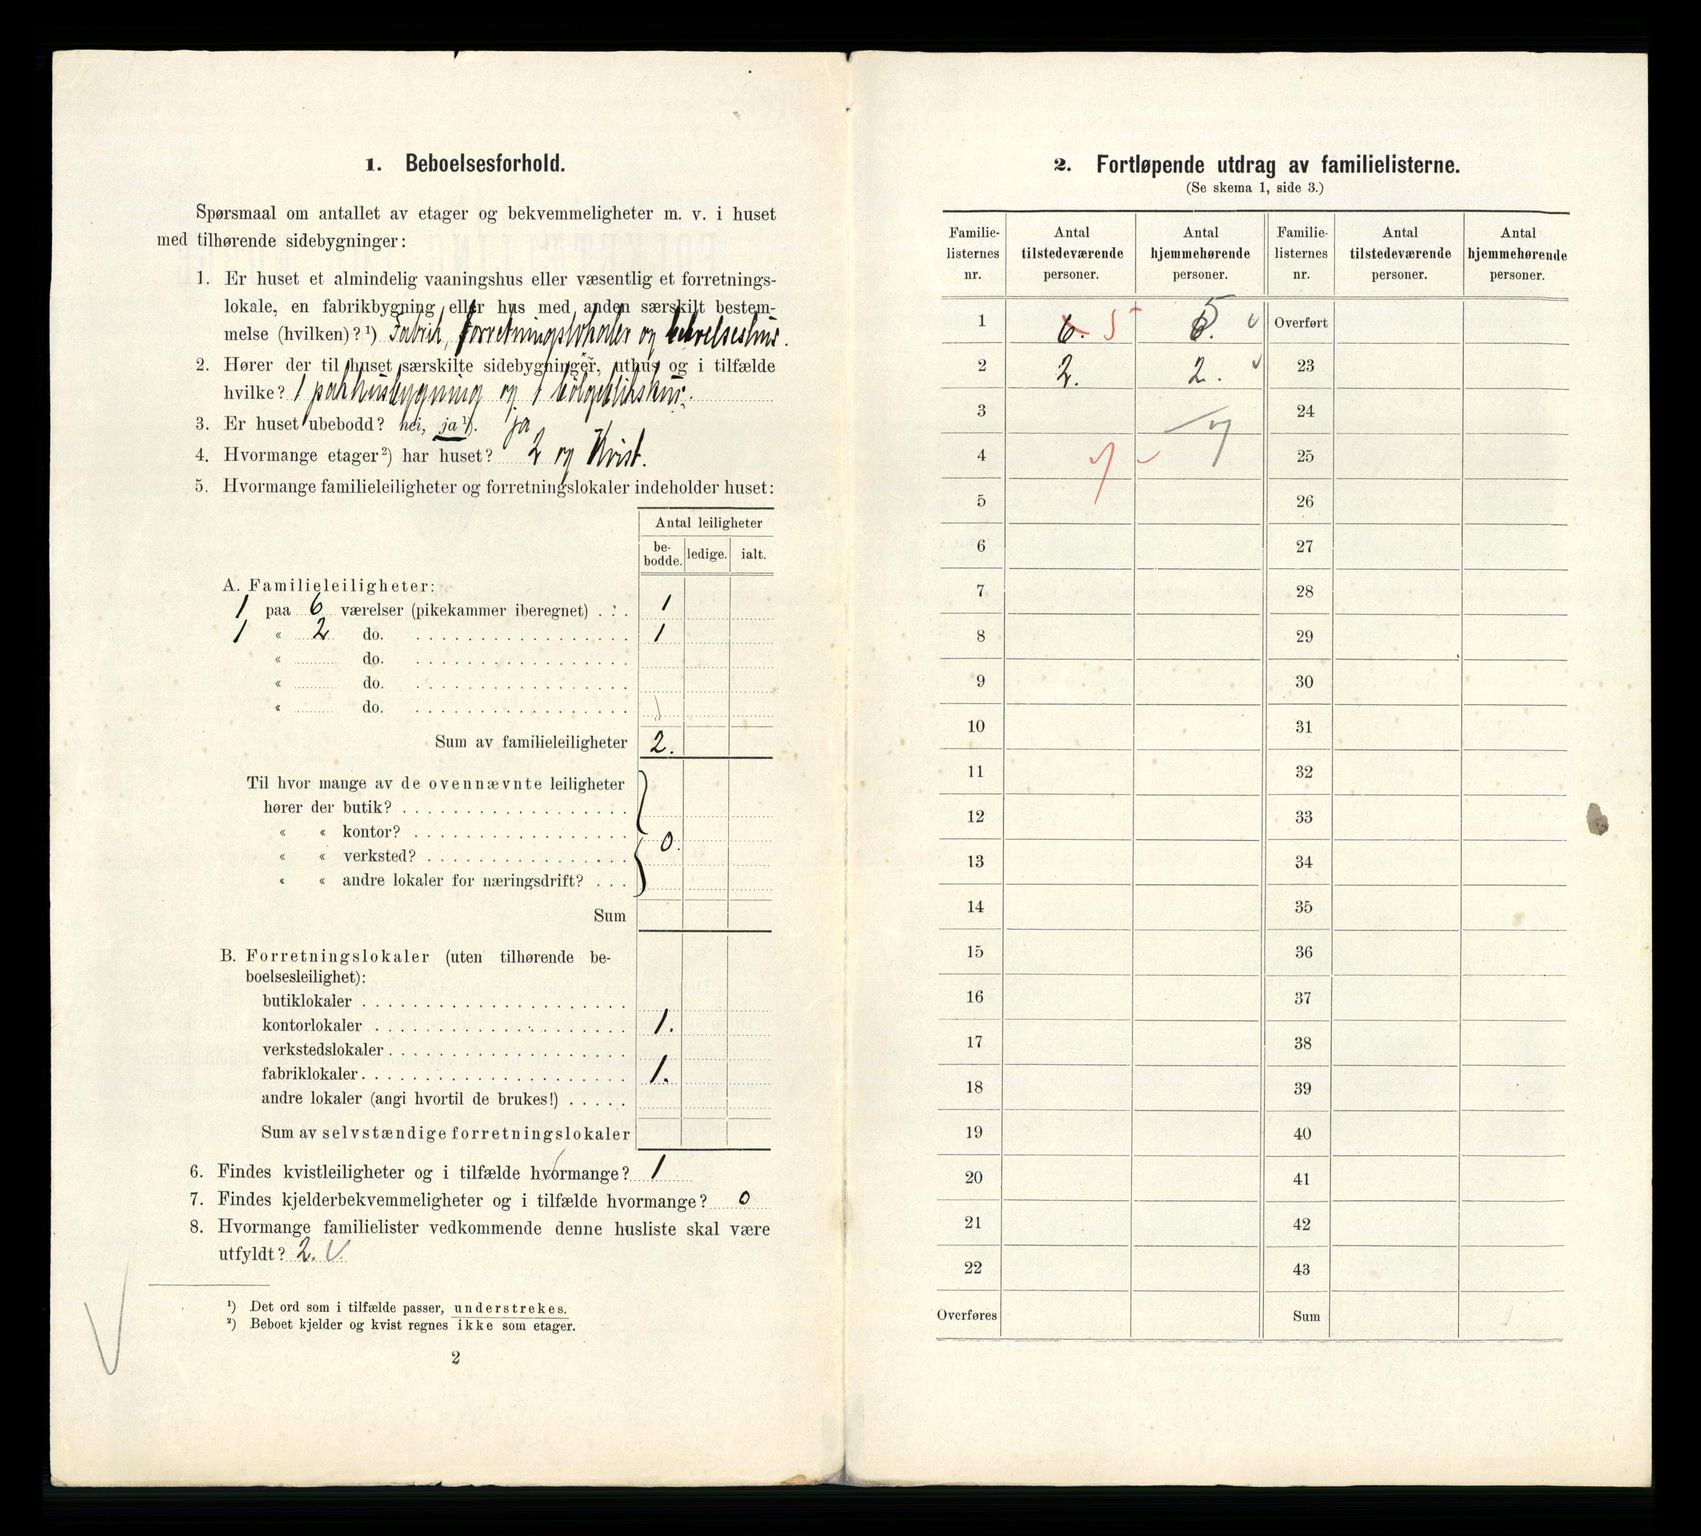 1. Beboelsesforhold.
Spørsmaal om antallet av etager og bekvemmeligheter m. v. i huset
med tilhørende sidebygninger:
1. Er huset et almindelig vaaningshus eller væsentlig et forretnings-
lokale, en fabrikbygning eller hus med anden særskilt bestem-
melse (hvilken)?¹) Fabrik, forretningslokaler og bebvelseshus.
2. Hører der til huset særskilte sidebygninger, uthus og i tilfælde
hvilke? 1 pakhusbygning og 1 bølgeblikskur.
3. Er huset ubebodd? nei, ja¹). ja
4. Hvormange etager²) har huset? 2 og Kvist.
5. Hvormange familieleiligheter og forretningslokaler indeholder huset:
Antal leiligheter
be-
bodde. ledige. ialt.
A. Familieleiligheter:
1 paa 6 værelser (pikekammer iberegnet) . . . 1
1 « 2 do. 1
« do.
« do.
« do.
Sum av familieleiligheter 2.
Til hvor mange av de ovennævnte leiligheter
hører der butik?
« « kontor?
0.
« « verksted?
« « andre lokaler for næringsdrift? . . .
Sum
B. Forretningslokaler (uten tilhørende be-
boelsesleilighet):
butiklokaler
kontorlokaler 1.
verkstedslokaler
fabriklokaler 1.
andre lokaler (angi hvortil de brukes!)
Sum av selvstændige forretningslokaler
6. Findes kvistleiligheter og i tilfælde hvormange? 1
7. Findes kjelderbekvemmeligheter og i tilfælde hvormange? 0
8. Hvormange familielister vedkommende denne husliste skal være
utfyldt? 2. V.
¹) Det ord som i tilfælde passer, understrekes.
²) Beboet kjelder og kvist regnes ikke som etager.
2
2. Fortløpende utdrag av familielisterne.
(Se skema 1, side 3.)
Familie- Antal Antal Familie- Antal Antal
listernes tilstedeværende hjemmehørende listernes tilstedeværende hjemmehørende
nr. personer. personer. nr. personer. personer.
1 6. 5 6. 5 Overført
2 2. 2. 23
3 7 24
4 7 25
5 26
6 27
7 28
8 29
9 30
10 31
11 32
12 33
13 34
14 35
15 36
16 37
17 38
18 39
19 40
20 41
21 42
22 43
Overføres Sum